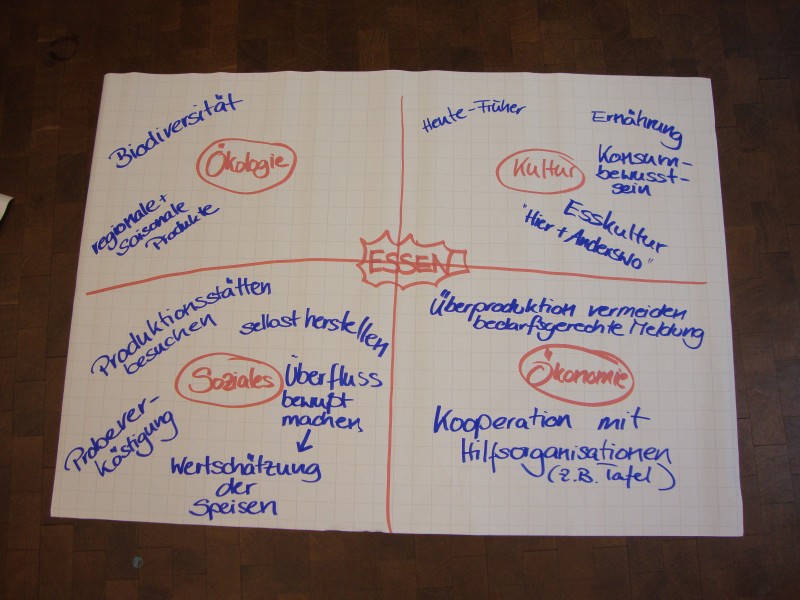 Biodiversität
Ökologie
regionale +
saisonale
Produkte
Heute - Früher
Ernährung
Kultur
Konsum-
bewusst-
sein
Esskultur
"Hier + Anderswo"
ESSEN
Produktionsstätten
besuchen
selbst herstellen
Soziales
Überfluss
bewußt
machen
Probever-
köstigung
Wertschätzung
der
Speisen
Überproduktion vermeiden
bedarfsgerechte Meldung
Ökonomie
Kooperation mit
Hilfsorganisationen
(z.B. Tafel)